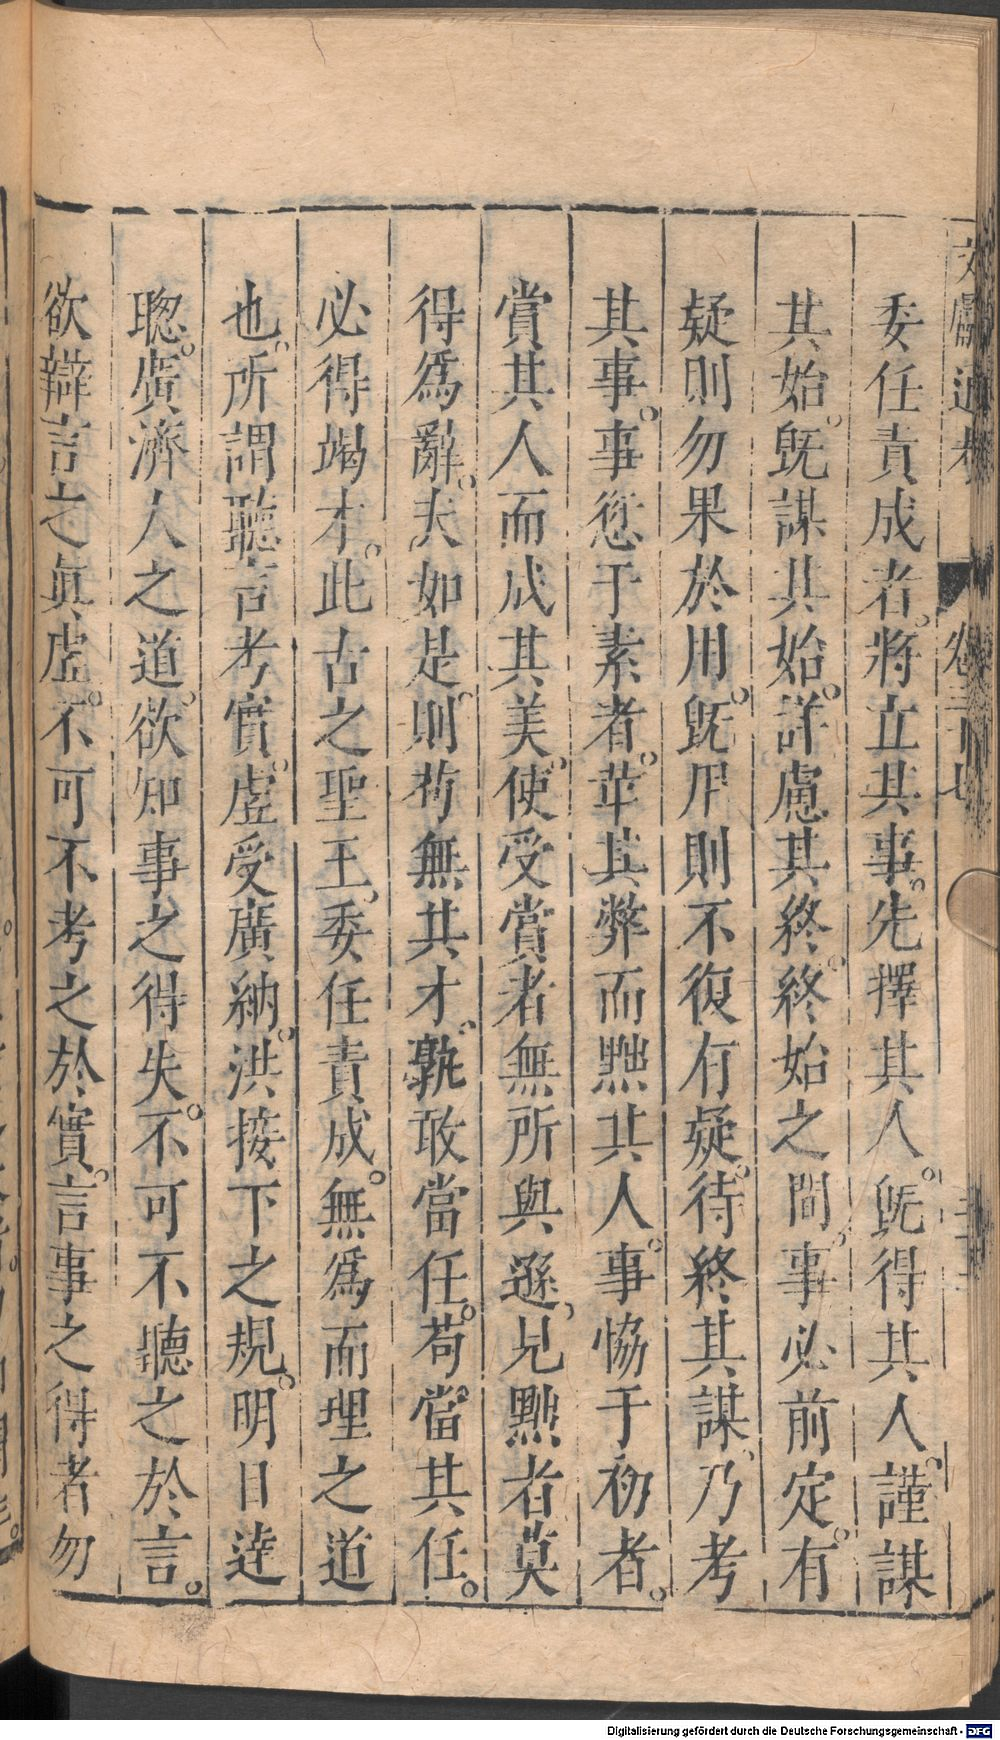 文獻通考 卷三十七
委任責成者。將立其事。先擇其人。旣得其人。謹謀
其始。旣謀其始。詳慮其終。終始之間。事必前定。有
疑則勿果於用。旣用則不復有疑。待終其謀、乃考
其事。事愆于素者。革其弊而黜其人。事協于初者。
賞其人而成其美。使受賞者無所與遜、見黜者莫
得爲辭。夫如是則苟無其才。孰敢當任。苟當其任。
必得竭才。此古之聖王、委任責成。無爲而理之道
也。所謂聽言考實。虛受廣納。洪接下之規。明目達
聰。廣濟人之道。欲知事之得失。不可不聽之於言。
欲辯言之眞虛。不可不考之於實。言事之得者勿
Digitalisierung gefördert durch die Deutsche Forschungsgemeinschaft - DFG